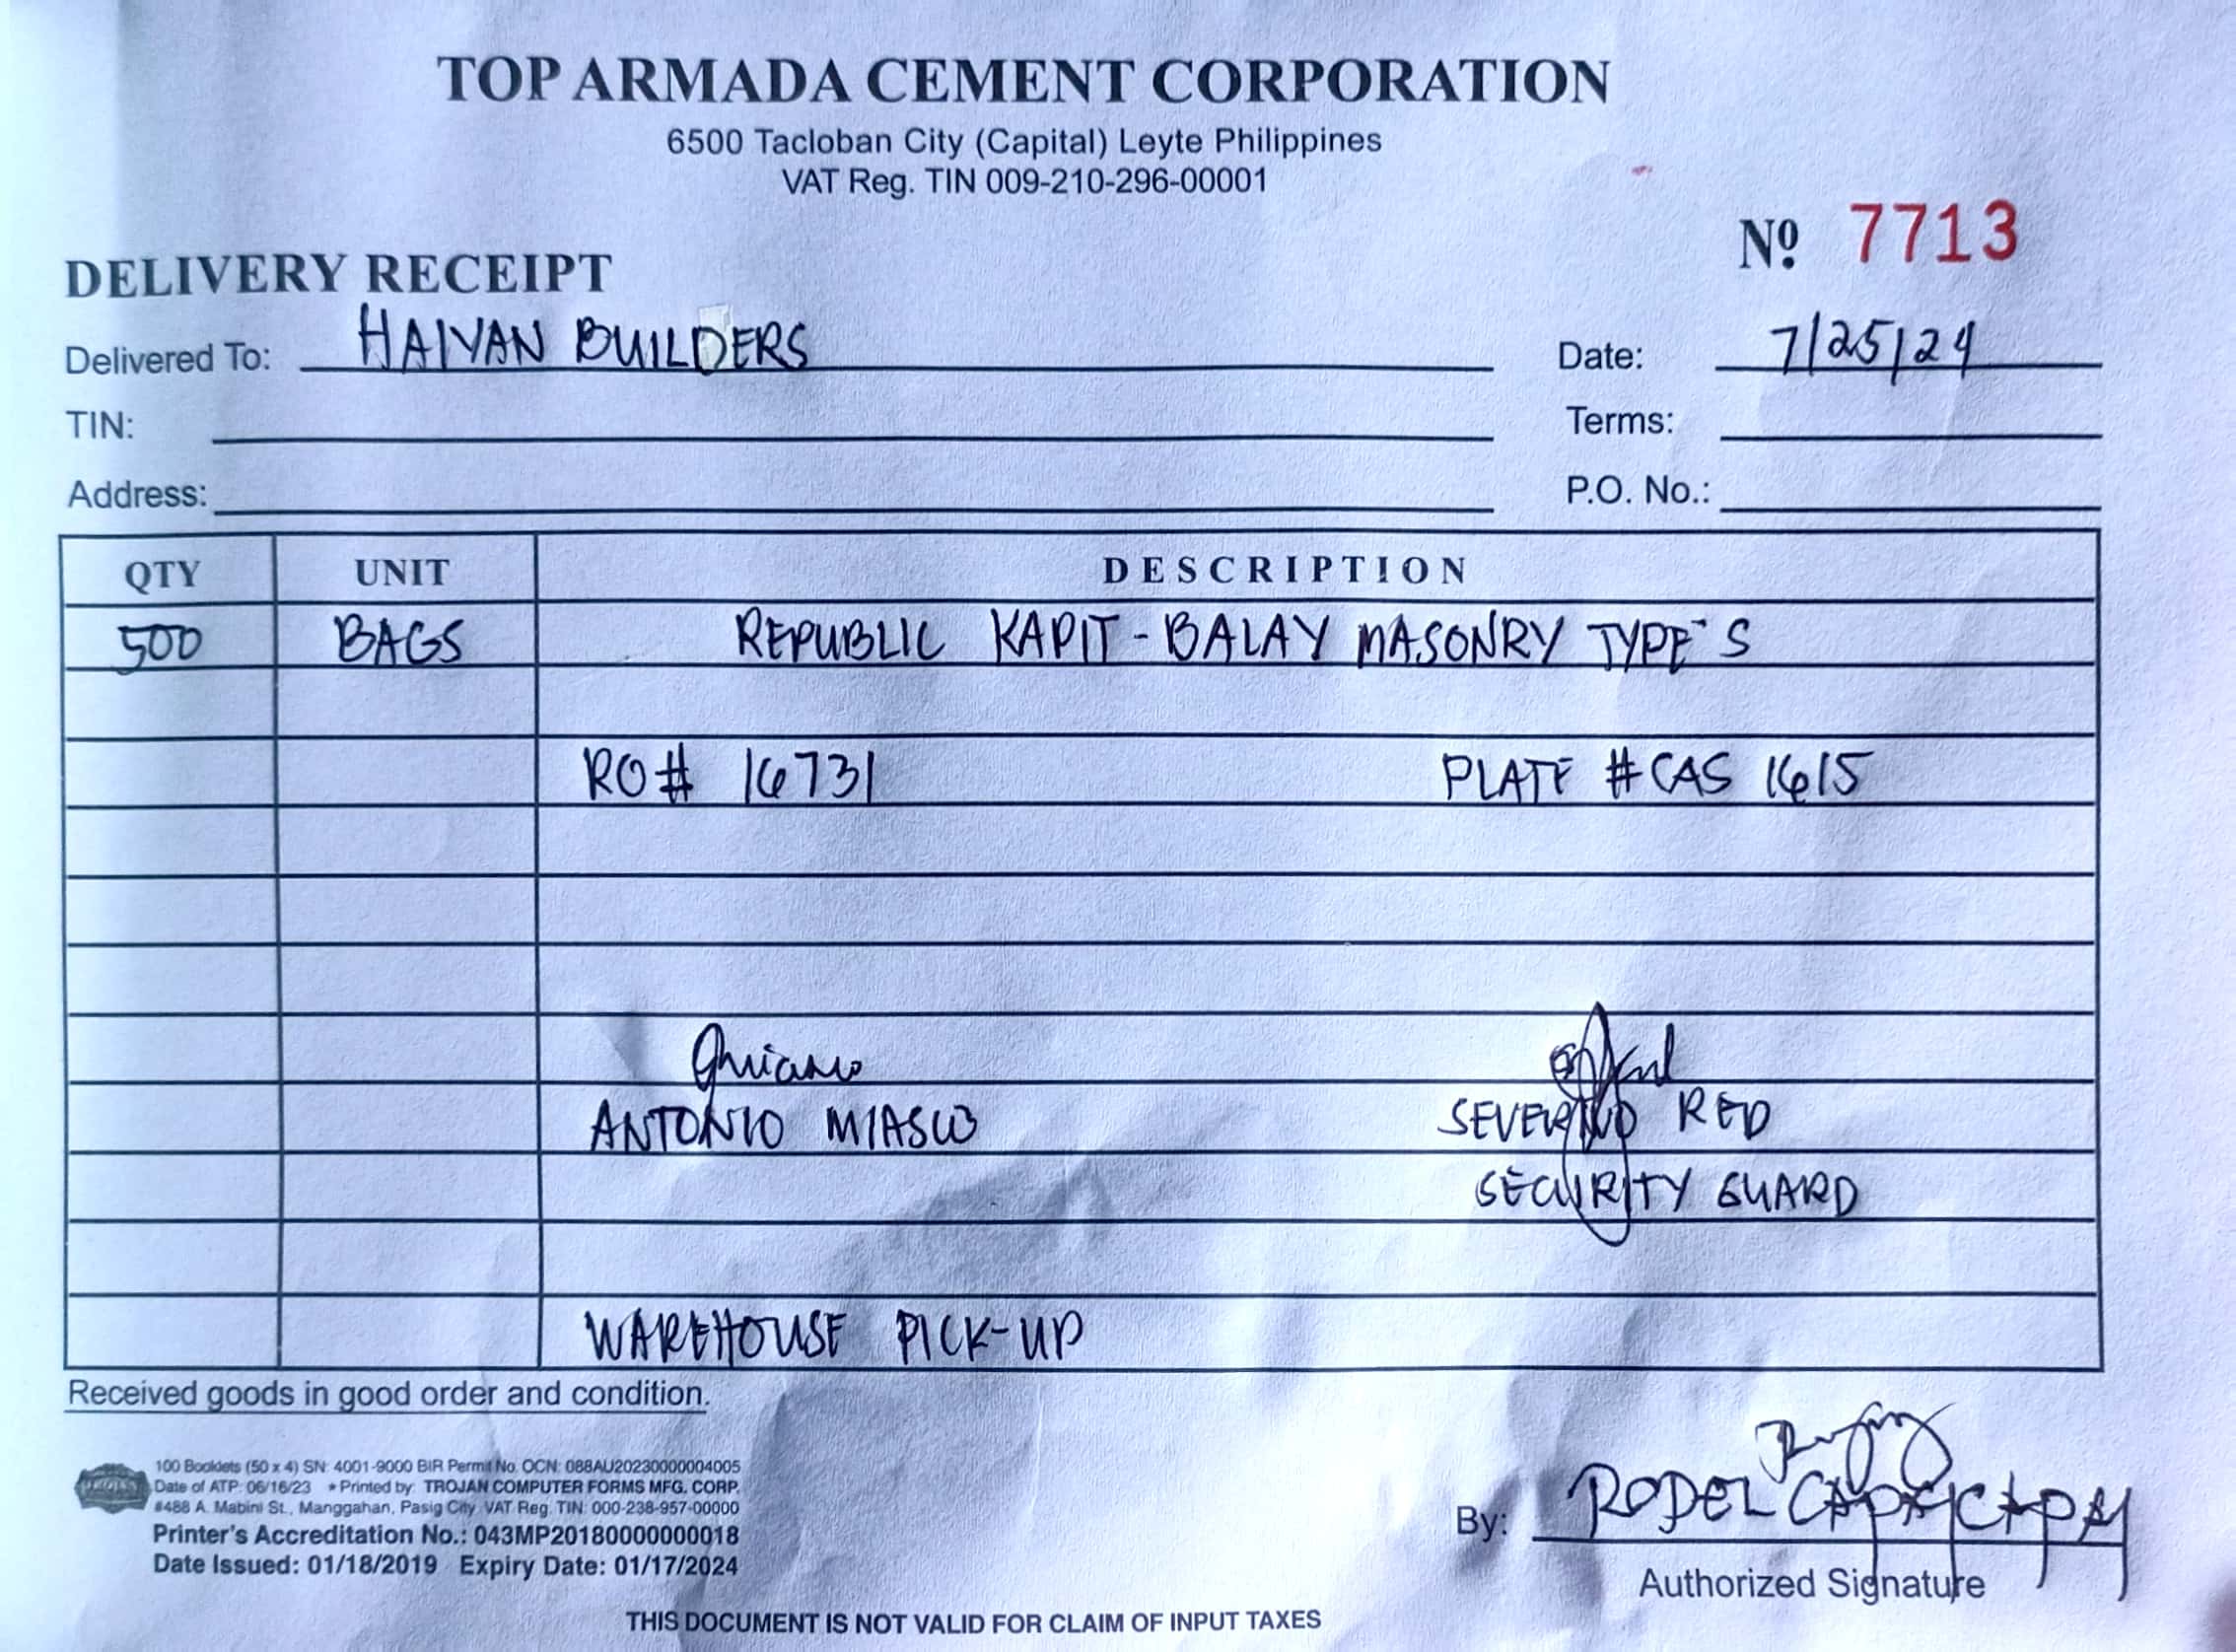 TOP ARMADA CEMENT CORPORATION
6500 Tacloban City (Capital) Leyte Philippines
VAT Reg. TIN 009-210-296-00001
Nº 7713
DELIVERY RECEIPT
Delivered To: HAIYAN BUILDERS Date: 7/25/24
TIN: Terms:
Address: P.O. No.:
QTY UNIT DESCRIPTION
500 BAGS REPUBLIC KAPIT-BALAY MASONRY TYPE S
RO# 16731 PLATE # CAS 1615
ANTONIO SEVERINO RED
SECURITY GUARD
WAREHOUSE PICK-UP
Received goods in good order and condition.
100 Booklets (50 x 4) SN: 4001-9000 BIR Permit No. OCN: 088AU20230000004005
Date of ATP: 06/16/23 • Printed by: TROJAN COMPUTER FORMS MFG. CORP.
#488 A. Mabini St., Manggahan, Pasig City VAT Reg. TIN: 000-238-957-00000
Printer's Accreditation No.: 043MP20180000000018
Date Issued: 01/18/2019 Expiry Date: 01/17/2024
By: RODEL
Authorized Signature
THIS DOCUMENT IS NOT VALID FOR CLAIM OF INPUT TAXES